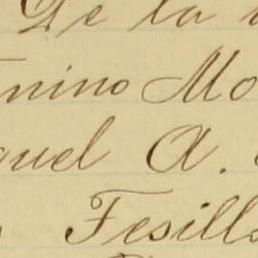 De la
nino Mo
uel A.
Fesill